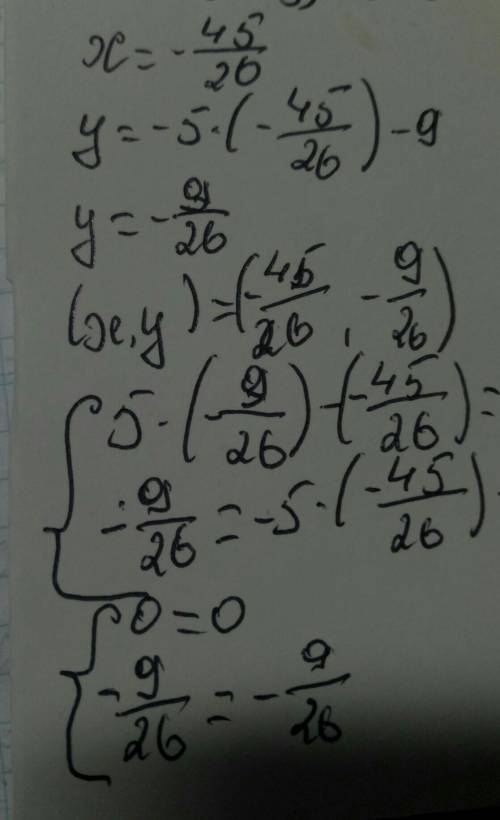 x = -45/26
y = -5·(-45/26) - 9
y = -9/26
(x, y) = (-45/26, -9/26)
{ 5·(-9/26) - (-45/26) =
-9/26 = -5·(-45/26)
{ 0 = 0
-9/26 = -9/26